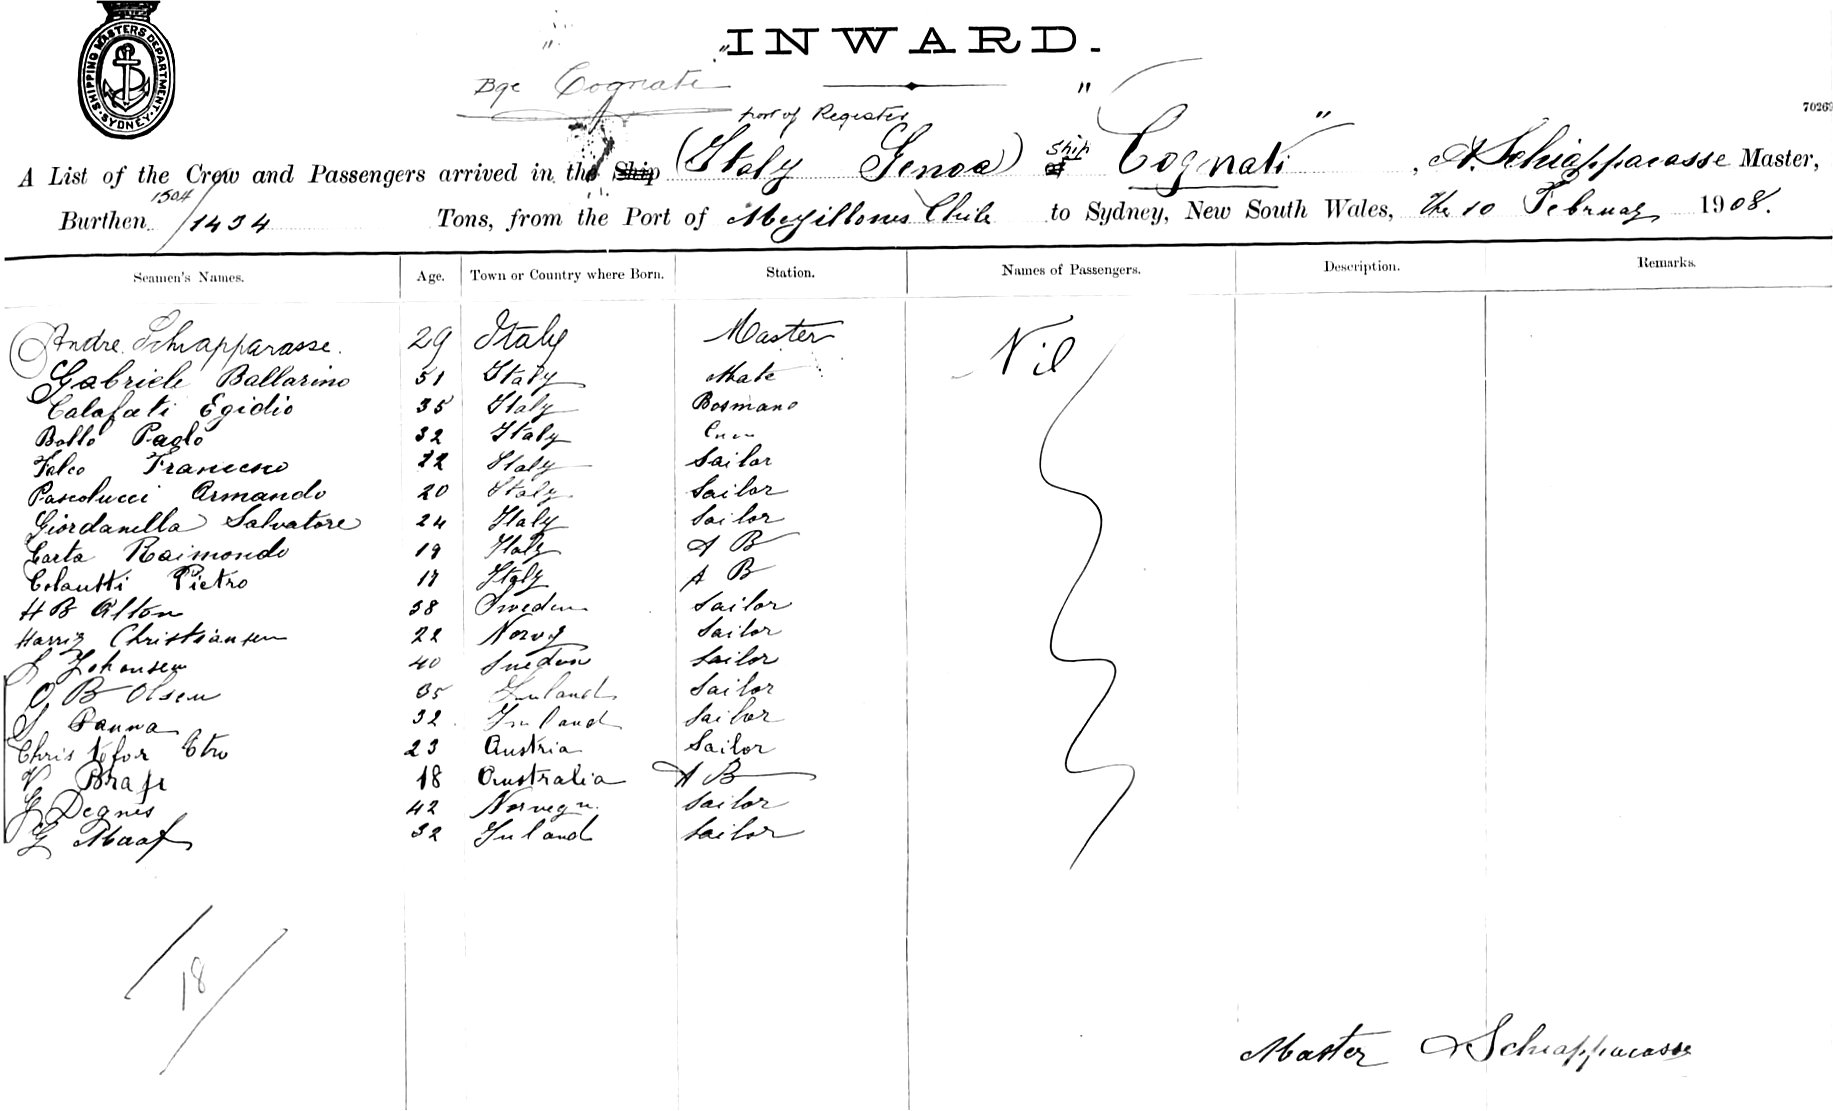 SHIPPING MASTERS DEPARTMENT
SYDNEY
INWARD.
Bqe Cognati
70263
port of Register
A List of the Crew and Passengers arrived in the Ship (Italy Genoa) ship "Cognati", A. Schiapparasse Master,
1504
Burthen 1434 Tons, from the Port of Mejillones Chile to Sydney, New South Wales, the 10 February 1908.
Seamen's Names. Age. Town or Country where Born. Station. Names of Passengers. Description. Remarks.
Andre Schiapparasse. 29 Italy Master Nil
Gabriele Ballarino 51 Italy Mate
Calafati Egidio 35 Italy Bosmano
Bollo Paolo 32 Italy
Falco Francesco 22 Italy Sailor
Pascolucci Armando 20 Italy Sailor
Giordanella Salvatore 24 Italy Sailor
Carta Raimondo 19 Italy A B
Colautti Pietro 17 Italy A B
H B Alton 38 Sweden Sailor
Harriz Christiansen 22 Norvg Sailor
Johansen 40 Sueden Sailor
O B Olsen 35 Finland Sailor
Panna 32 Finland Sailor
Christofor Etro 23 Austria Sailor
V 18 Australia A B
G Degnes 42 Norvegn. Sailor
G Maaf 32 Finland Sailor
18
Master A Schiapparasse